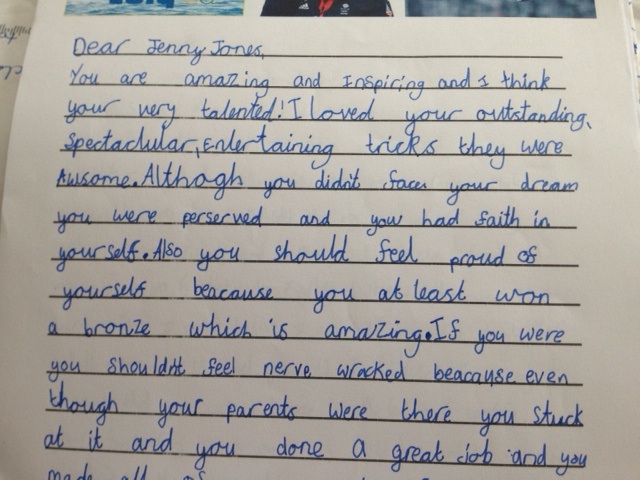 Dear Jenny Jones,
You are amazing and Inspiring and I think
your very talented! I loved your outstanding,
Spectaclular, Entertaining tricks they were
Awsome. Althogh you didn't face your dream
you were perserved and you had faith in
yourself. Also you should feel proud of
yourself beacause you at least won
a bronze which is amazing. If you were
you shouldn't feel nerve wracked beacause even
though your parents were there you stuck
at it and you done a great job and you
made all of